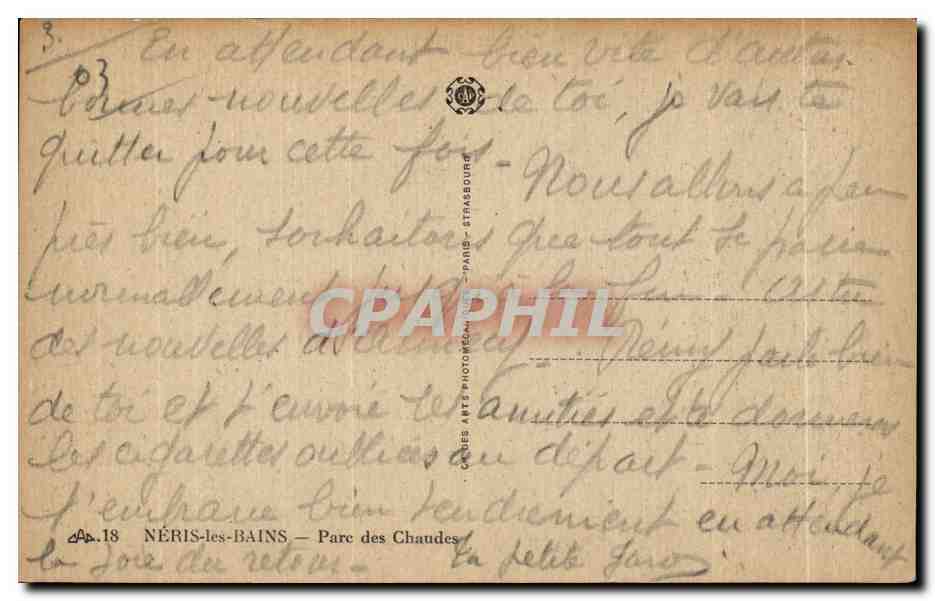 3.
03
En attendant bien vite d'autres
bonnes nouvelles de toi, je vais te
quitter pour cette fois -
Nous allons à peu
près bien, souhaitons que tout se passe
normalement
des nouvelles - Rémy parle bien
de toi et t'envoie ses amitiés et te donnera
les cigarettes oubliées au départ - Moi, je
t'embrasse bien tendrement en attendant
la joie du retour - Ta petite
CAP
CIE DES ARTS PHOTOMÉCANIQUES - PARIS - STRASBOURG
CPAPHIL
CAP. 18 NÉRIS-les-BAINS — Parc des Chaudes